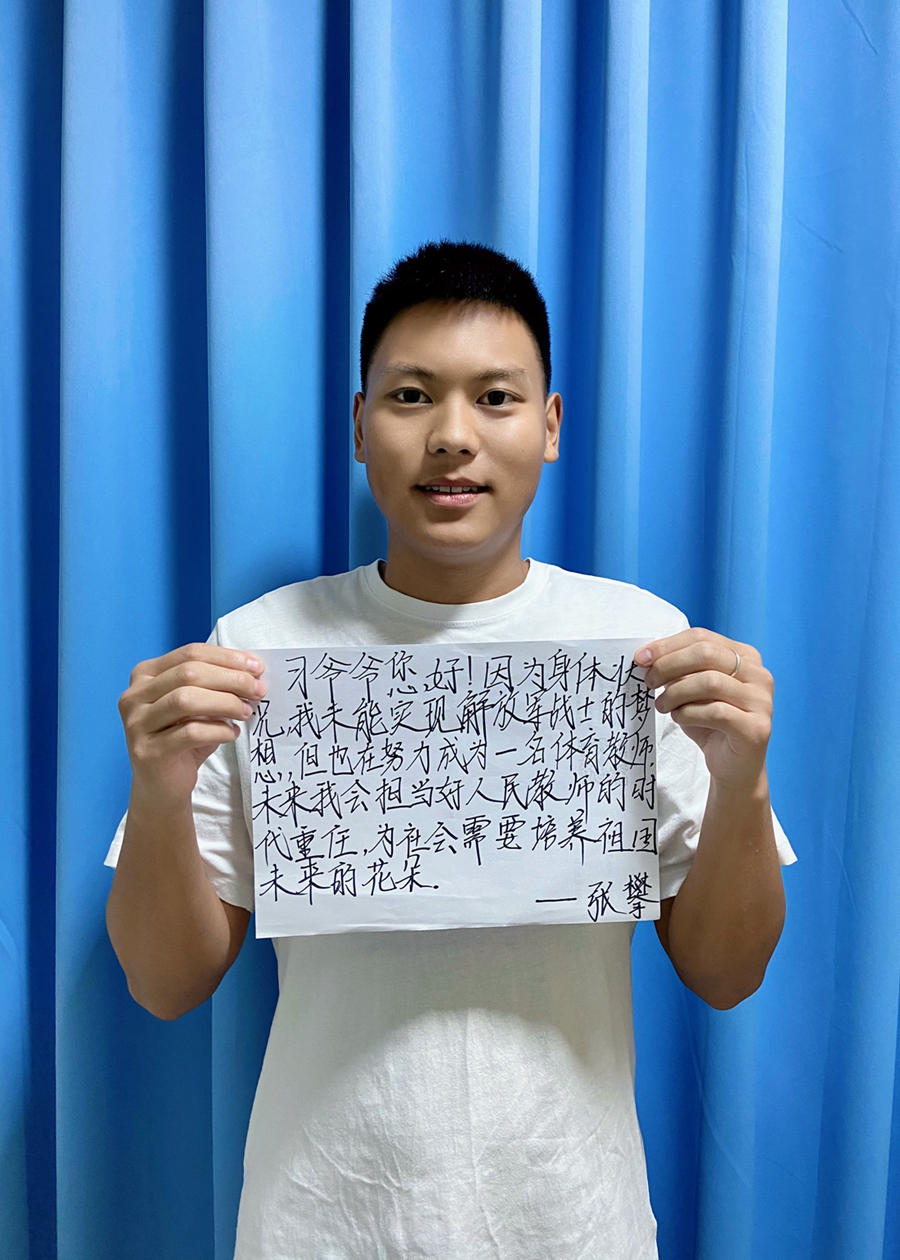 习爷爷您好！因为身体状
况，我未能实现解放军战士的梦
想，但也在努力成为一名体育教师.
未来我会担当好人民教师的时
代重任，为社会需要培养祖国
未来的花朵.
一张攀